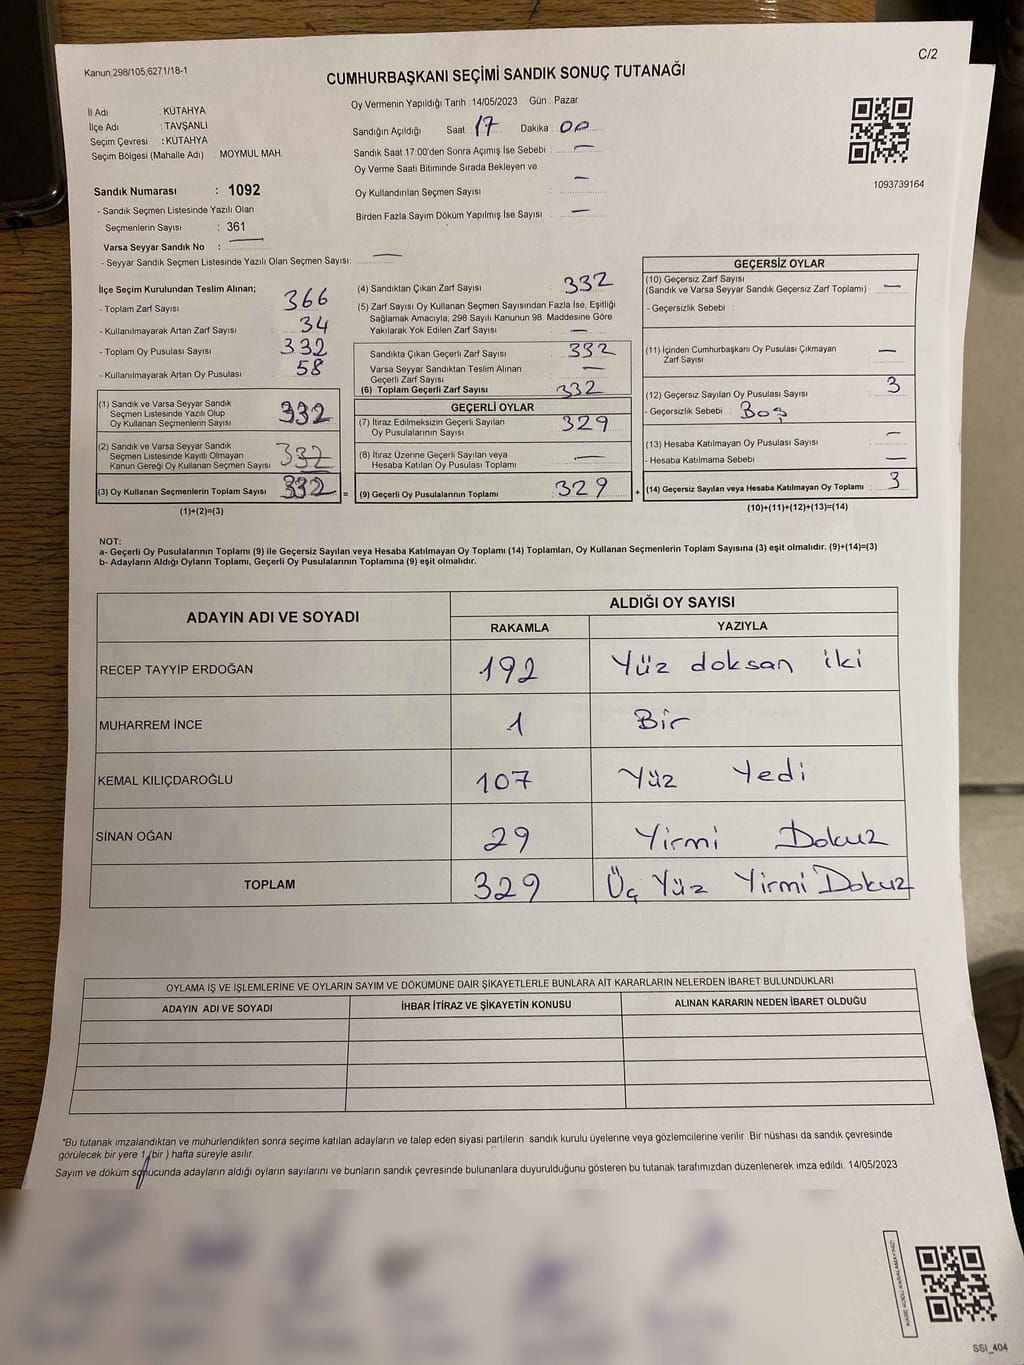 C/2
Kanun;298/105,6271/18-1
CUMHURBAŞKANI SEÇİMİ SANDIK SONUÇ TUTANAĞI
İl Adı : KÜTAHYA
İlçe Adı : TAVŞANLI
Seçim Çevresi : KÜTAHYA
Seçim Bölgesi (Mahalle Adı) : MOYMUL MAH.
Sandık Numarası : 1092
- Sandık Seçmen Listesinde Yazılı Olan
Seçmenlerin Sayısı : 361
Varsa Seyyar Sandık No : —
- Seyyar Sandık Seçmen Listesinde Yazılı Olan Seçmen Sayısı: —
Oy Vermenin Yapıldığı Tarih : 14/05/2023 Gün : Pazar
Sandığın Açıldığı Saat : 17 Dakika : 00
Sandık Saat 17:00'den Sonra Açımış İse Sebebi : —
Oy Verme Saati Bitiminde Sırada Bekleyen ve
Oy Kullandırılan Seçmen Sayısı : —
Birden Fazla Sayım Döküm Yapılmış İse Sayısı : —
1093739164
İlçe Seçim Kurulundan Teslim Alınan;
- Toplam Zarf Sayısı : 366
- Kullanılmayarak Artan Zarf Sayısı : 34
- Toplam Oy Pusulası Sayısı : 332
- Kullanılmayarak Artan Oy Pusulası : 58
(1) Sandık ve Varsa Seyyar Sandık
Seçmen Listesinde Yazılı Olup
Oy Kullanan Seçmenlerin Sayısı : 332
(2) Sandık ve Varsa Seyyar Sandık
Seçmen Listesinde Kayıtlı Olmayan
Kanun Gereği Oy Kullanan Seçmen Sayısı : 332
(3) Oy Kullanan Seçmenlerin Toplam Sayısı : 332 =
(1)+(2)=(3)
(4) Sandıktan Çıkan Zarf Sayısı : 332
(5) Zarf Sayısı Oy Kullanan Seçmen Sayısından Fazla İse, Eşitliği
Sağlamak Amacıyla, 298 Sayılı Kanunun 98. Maddesine Göre
Yakılarak Yok Edilen Zarf Sayısı : —
Sandıkta Çıkan Geçerli Zarf Sayısı : 332
Varsa Seyyar Sandıktan Teslim Alınan
Geçerli Zarf Sayısı : —
(6) Toplam Geçerli Zarf Sayısı : 332
GEÇERLİ OYLAR
(7) İtiraz Edilmeksizin Geçerli Sayılan
Oy Pusulalarının Sayısı : 329
(8) İtiraz Üzerine Geçerli Sayılan veya
Hesaba Katılan Oy Pusulası Toplamı : —
(9) Geçerli Oy Pusulalarının Toplamı : 329 +
GEÇERSİZ OYLAR
(10) Geçersiz Zarf Sayısı
(Sandık ve Varsa Seyyar Sandık Geçersiz Zarf Toplamı) : —
- Geçersizlik Sebebi :
(11) İçinden Cumhurbaşkanı Oy Pusulası Çıkmayan
Zarf Sayısı : —
(12) Geçersiz Sayılan Oy Pusulası Sayısı : 3
- Geçersizlik Sebebi : Boş
(13) Hesaba Katılmayan Oy Pusulası Sayısı : —
- Hesaba Katılmama Sebebi : —
(14) Geçersiz Sayılan veya Hesaba Katılmayan Oy Toplamı : 3
(10)+(11)+(12)+(13)=(14)
NOT:
a- Geçerli Oy Pusulalarının Toplamı (9) ile Geçersiz Sayılan veya Hesaba Katılmayan Oy Toplamı (14) Toplamları, Oy Kullanan Seçmenlerin Toplam Sayısına (3) eşit olmalıdır. (9)+(14)=(3)
b- Adayların Aldığı Oyların Toplamı, Geçerli Oy Pusulalarının Toplamına (9) eşit olmalıdır.
ADAYIN ADI VE SOYADI ALDIĞI OY SAYISI
RAKAMLA YAZIYLA
RECEP TAYYİP ERDOĞAN 192 Yüz doksan iki
MUHARREM İNCE 1 Bir
KEMAL KILIÇDAROĞLU 107 Yüz Yedi
SİNAN OĞAN 29 Yirmi Dokuz
TOPLAM 329 Üç Yüz Yirmi Dokuz
OYLAMA İŞ VE İŞLEMLERİNE VE OYLARIN SAYIM VE DÖKÜMÜNE DAİR ŞİKAYETLERLE BUNLARA AİT KARARLARIN NELERDEN İBARET BULUNDUKLARI
ADAYIN ADI VE SOYADI İHBAR İTİRAZ VE ŞİKAYETİN KONUSU ALINAN KARARIN NEDEN İBARET OLDUĞU
*Bu tutanak imzalandıktan ve mühürlendikten sonra seçime katılan adayların ve talep eden siyasi partilerin sandık kurulu üyelerine veya gözlemcilerine verilir .Bir nüshası da sandık çevresinde
görülecek bir yere 1 (bir ) hafta süreyle asılır.
Sayım ve döküm sonucunda adayların aldığı oyların sayılarını ve bunların sandık çevresinde bulunanlara duyurulduğunu gösteren bu tutanak tarafımızdan düzenlenerek imza edildi. 14/05/2023
KARE KODU KARALAMAYINIZ!
SSI_404